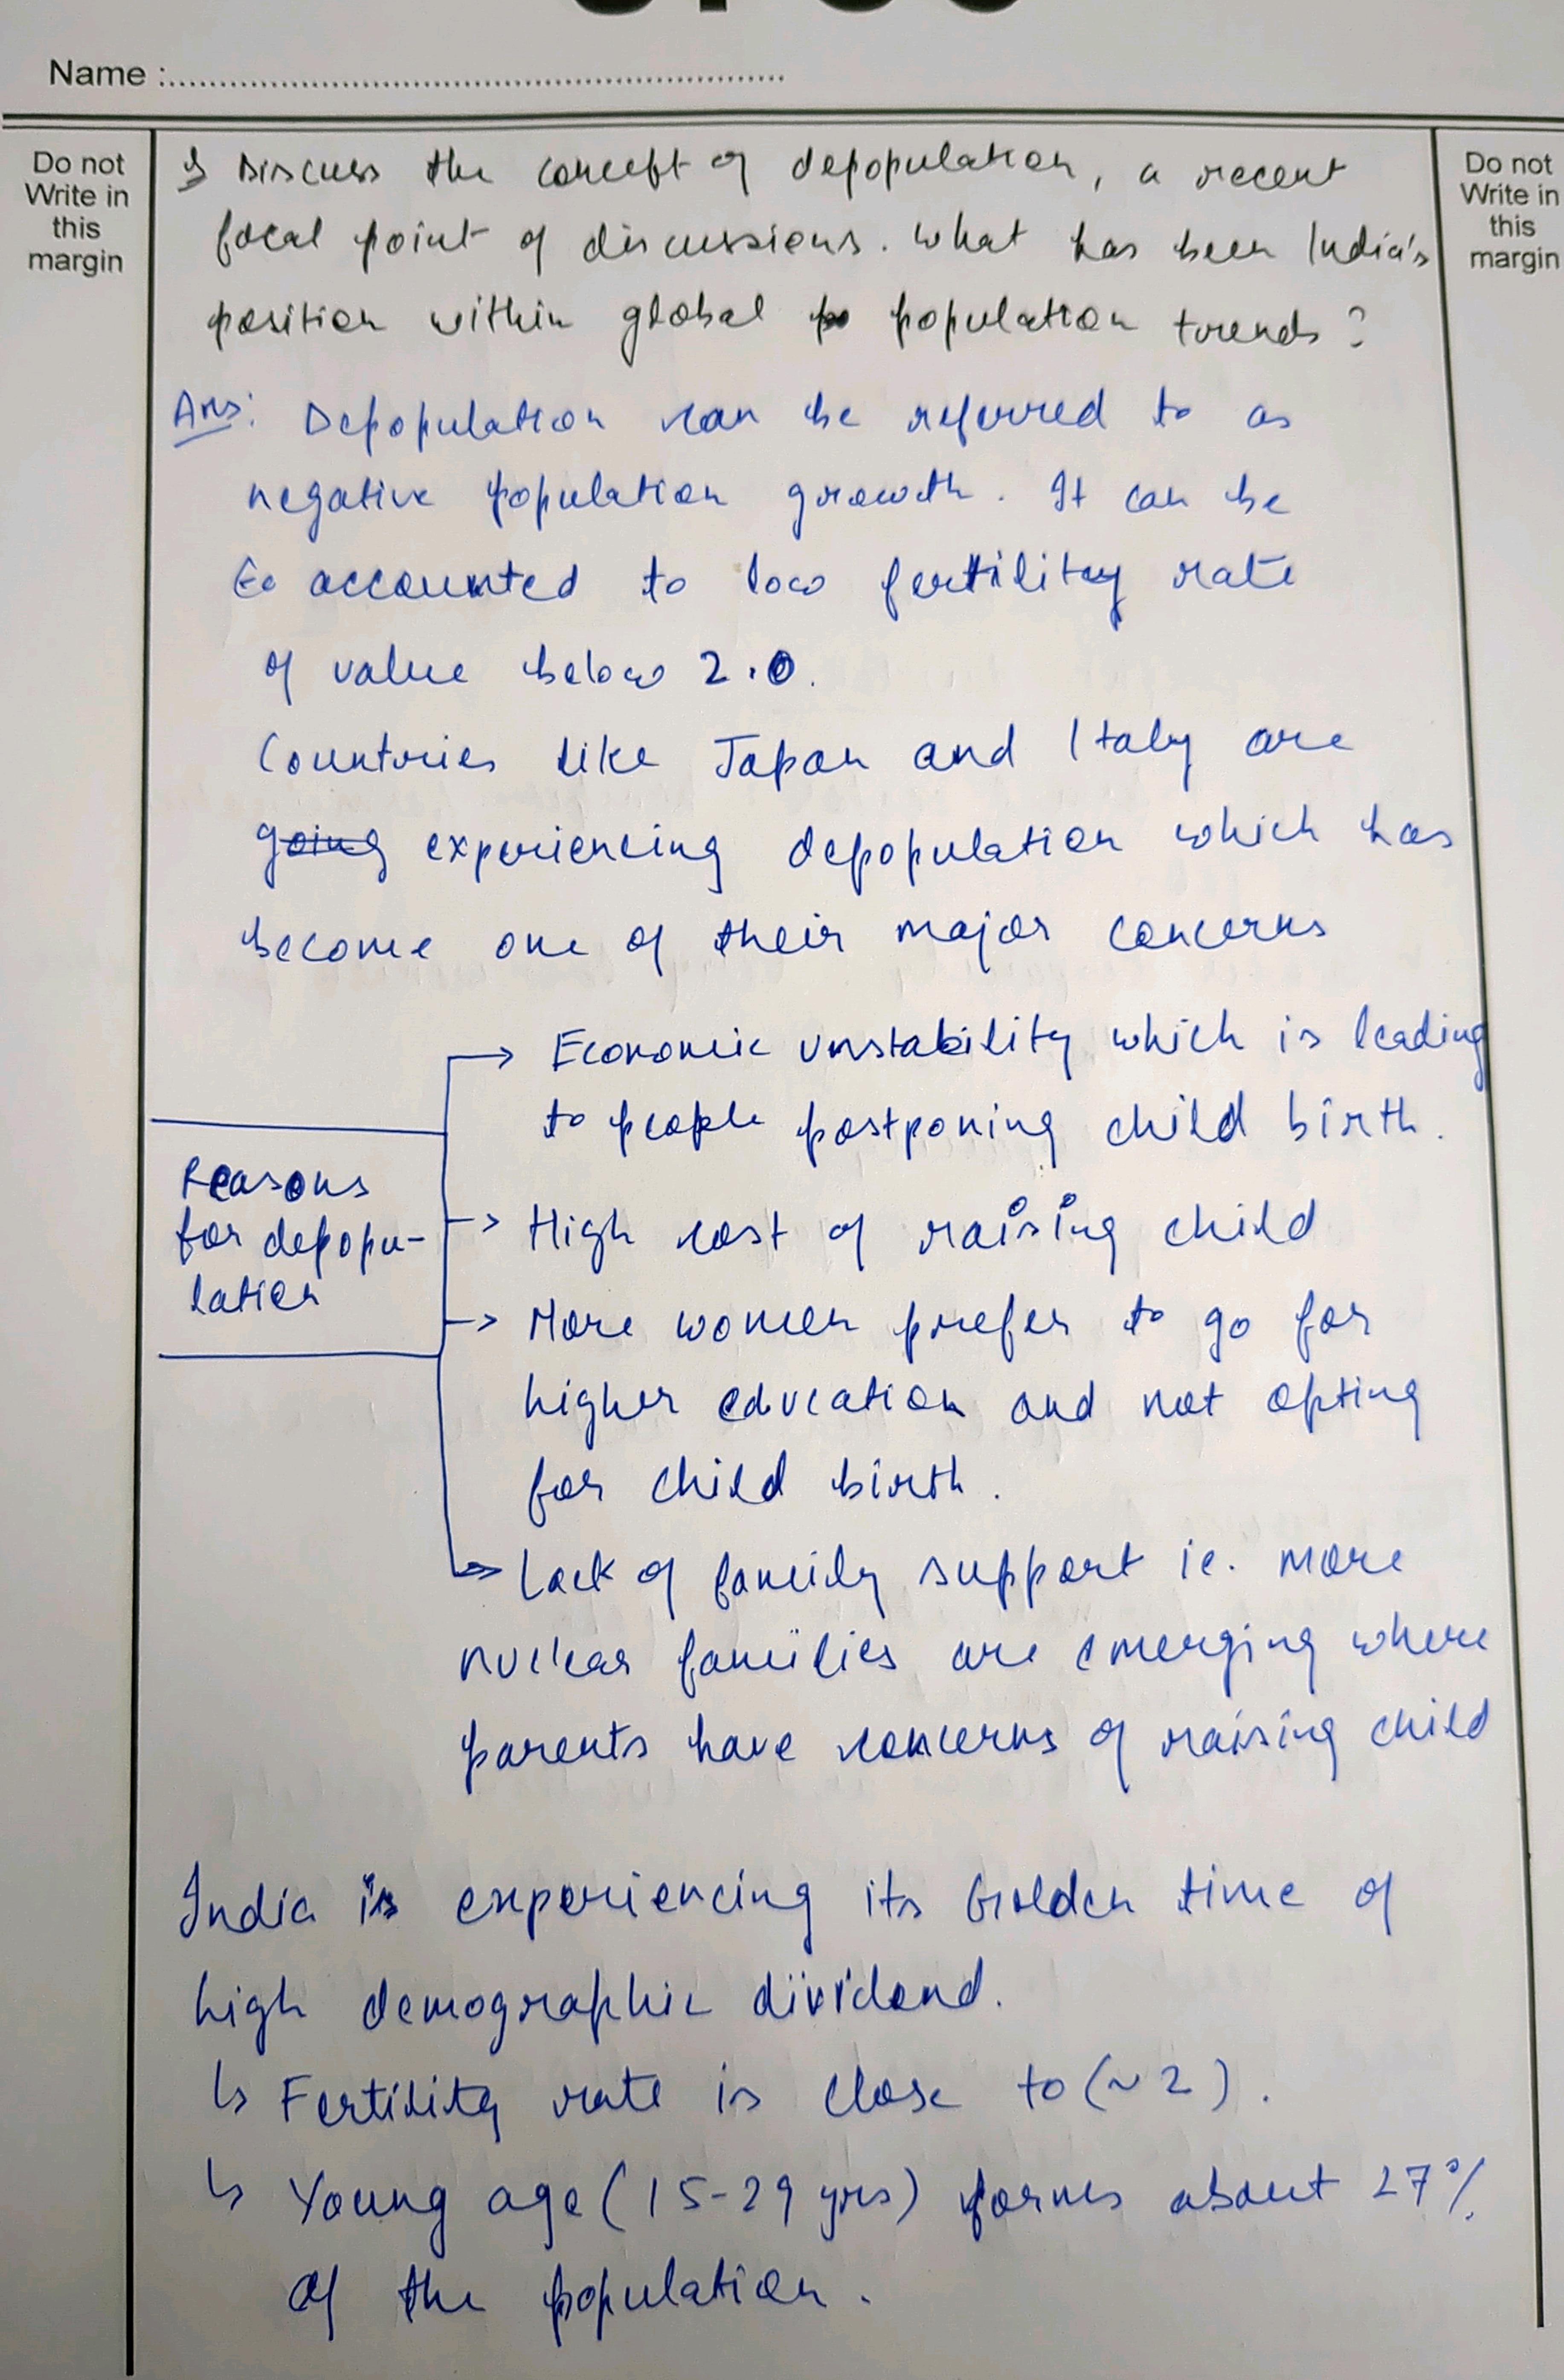 Name :
Do not
Write in
this
margin
Do not
Write in
this
margin
Discuss the concept of depopulation, a recent
focal point of discussions. What has been India's
position within global population trends?
Ans: Depopulation can be referred to as
negative population growth. It can be
accounted to low fertility rate
of value below 2.0.
Countries like Japan and Italy are
going experiencing depopulation which has
become one of their major concerns
Reasons
for depopu-
lation
→ Economic unstability which is leading
to people postponing child birth.
→ High cost of raising child
→ More women prefer to go for
higher education and not opting
for child birth.
→ Lack of family support ie. more
nuclear families are emerging where
parents have concerns of raising child
India is experiencing its Golden time of
high demographic dividend.
↳ Fertility rate is close to (~2).
↳ Young age (15-29 yrs) forms about 27%
of the population.